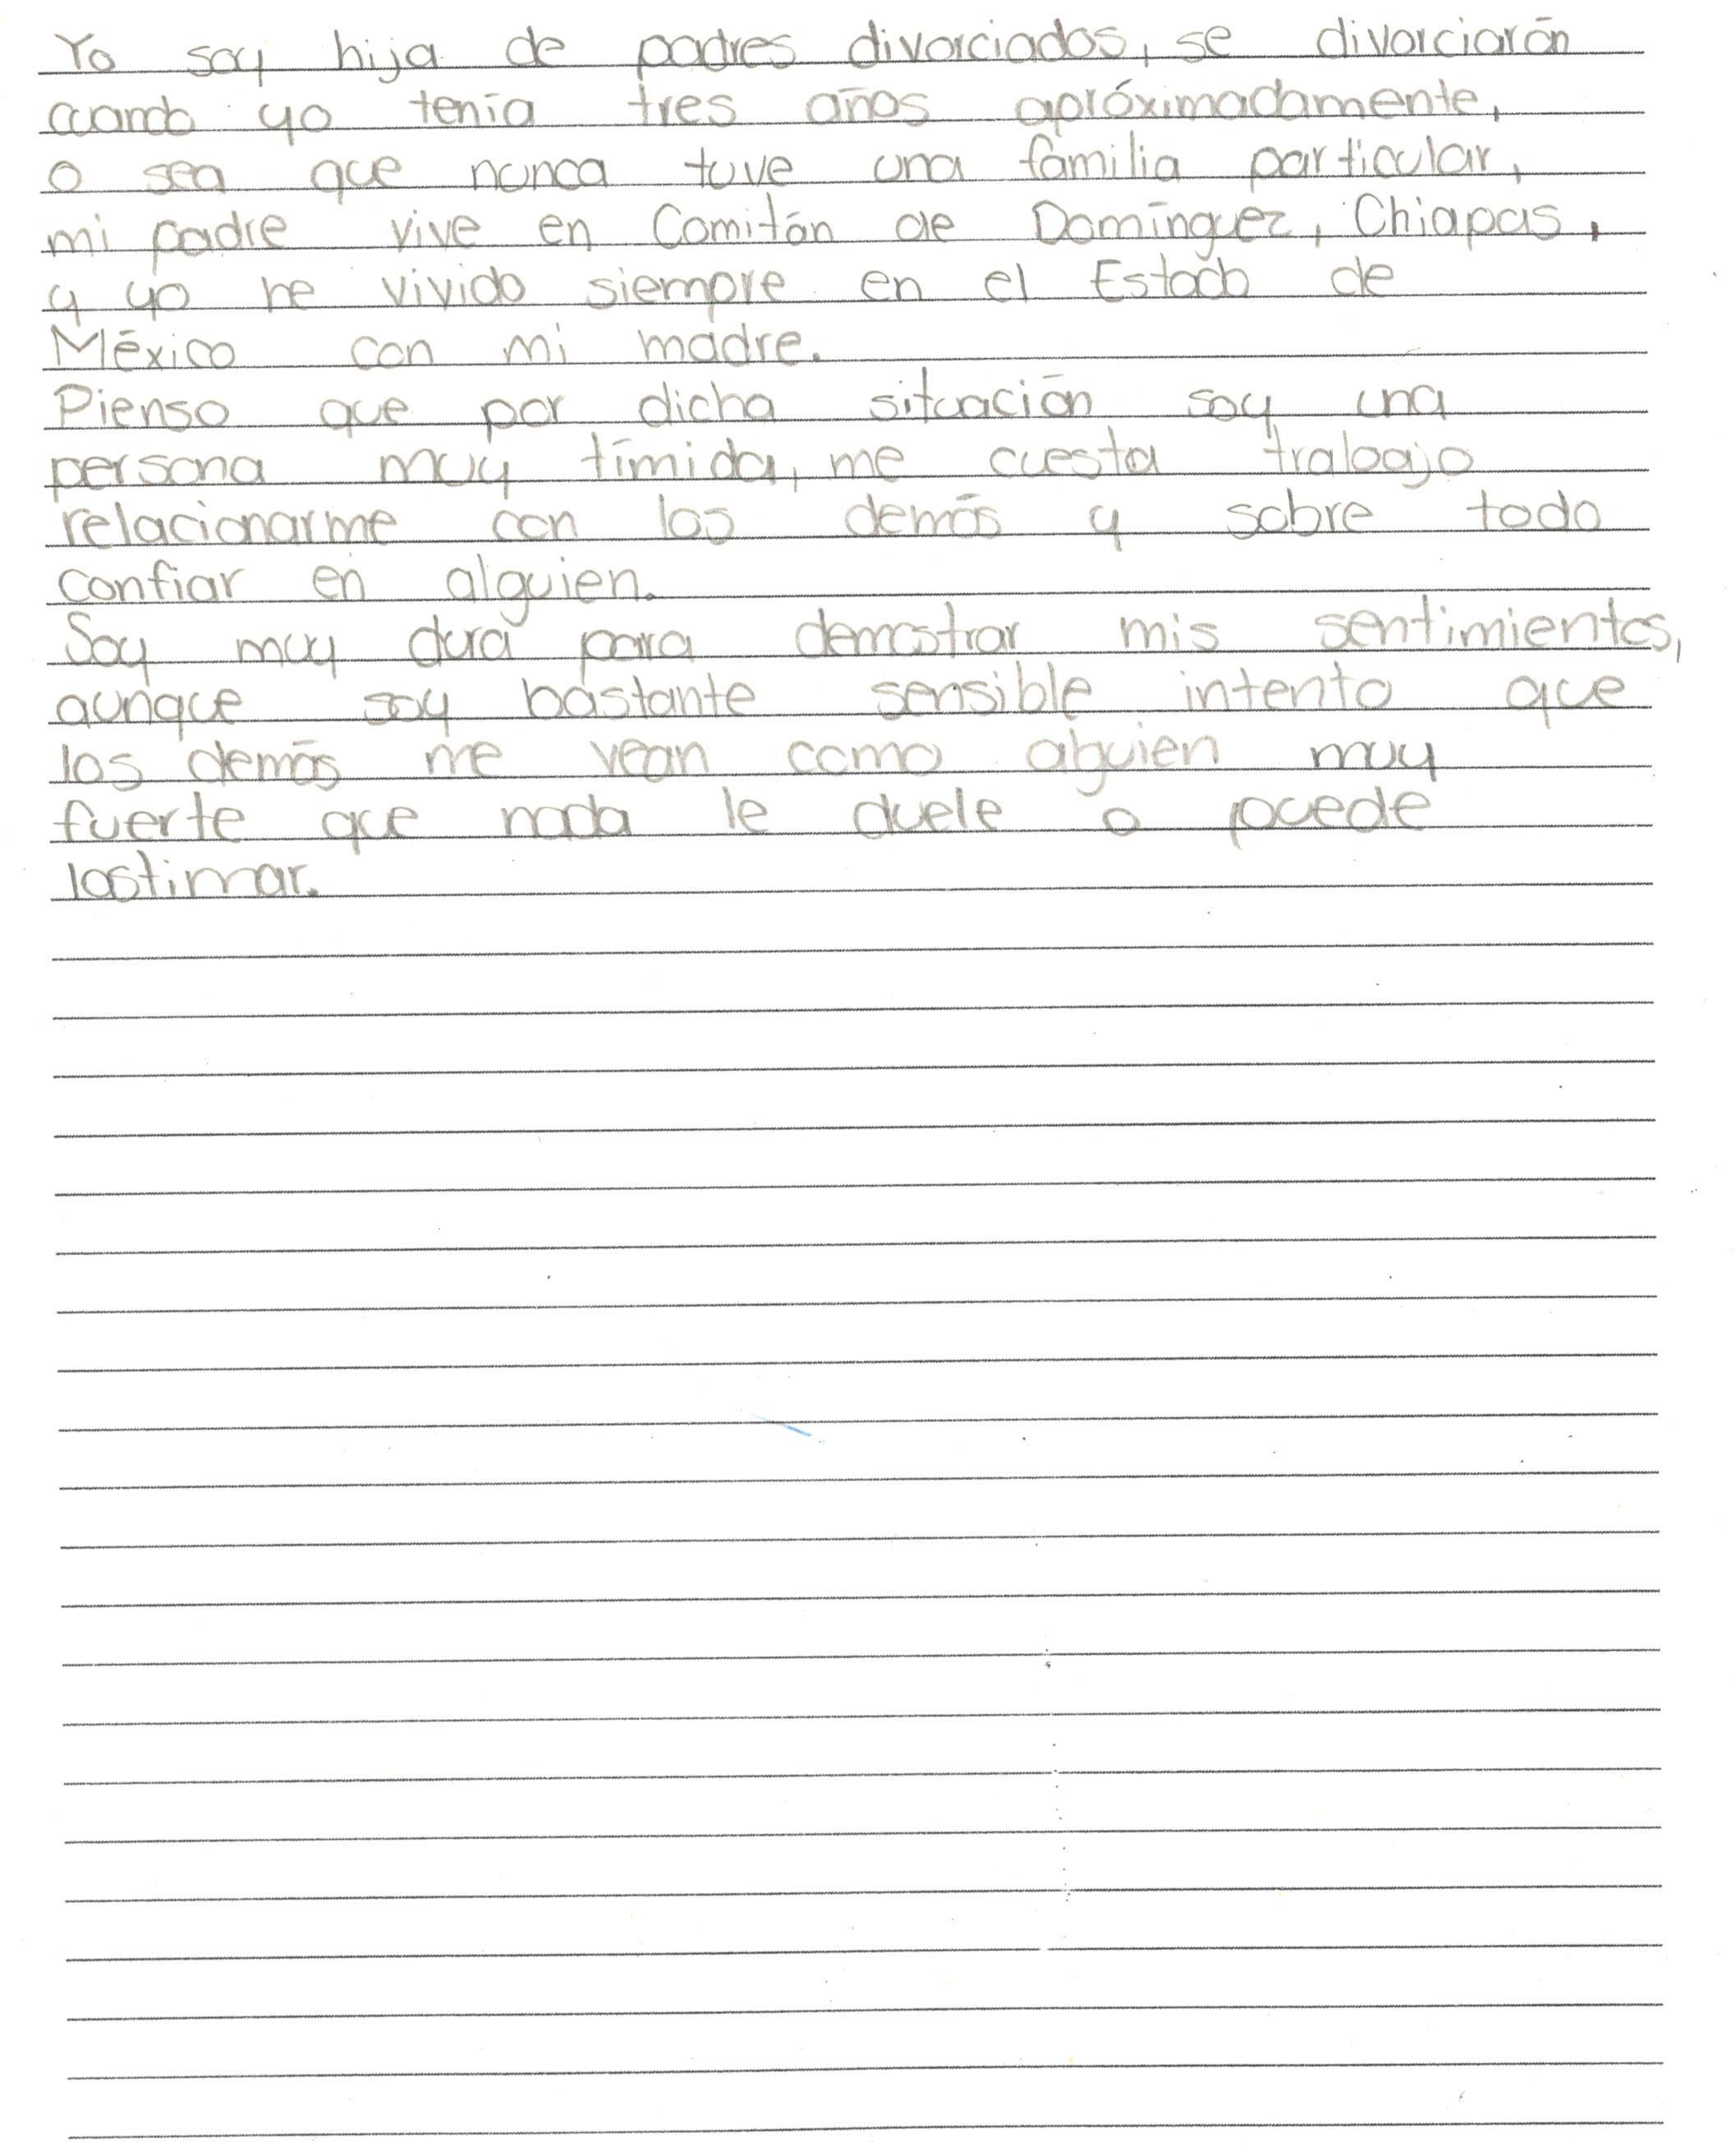 Yo soy hija de padres divorciados, se divorciarón
cuando yo tenía tres años apróximadamente,
o sea que nunca tuve una familia particular,
mi padre vive en Comitán de Domínguez, Chiapas,
y yo he vivido siempre en el Estado de
México con mi madre.
Pienso que por dicha situación soy una
persona muy tímida, me cuesta trabajo
relacionarme con los demás y sobre todo
confiar en alguien.
Soy muy dura para demostrar mis sentimientos,
aunque soy bastante sensible intento que
los demás me vean como alguien muy
fuerte que nada le duele o puede
lastimar.